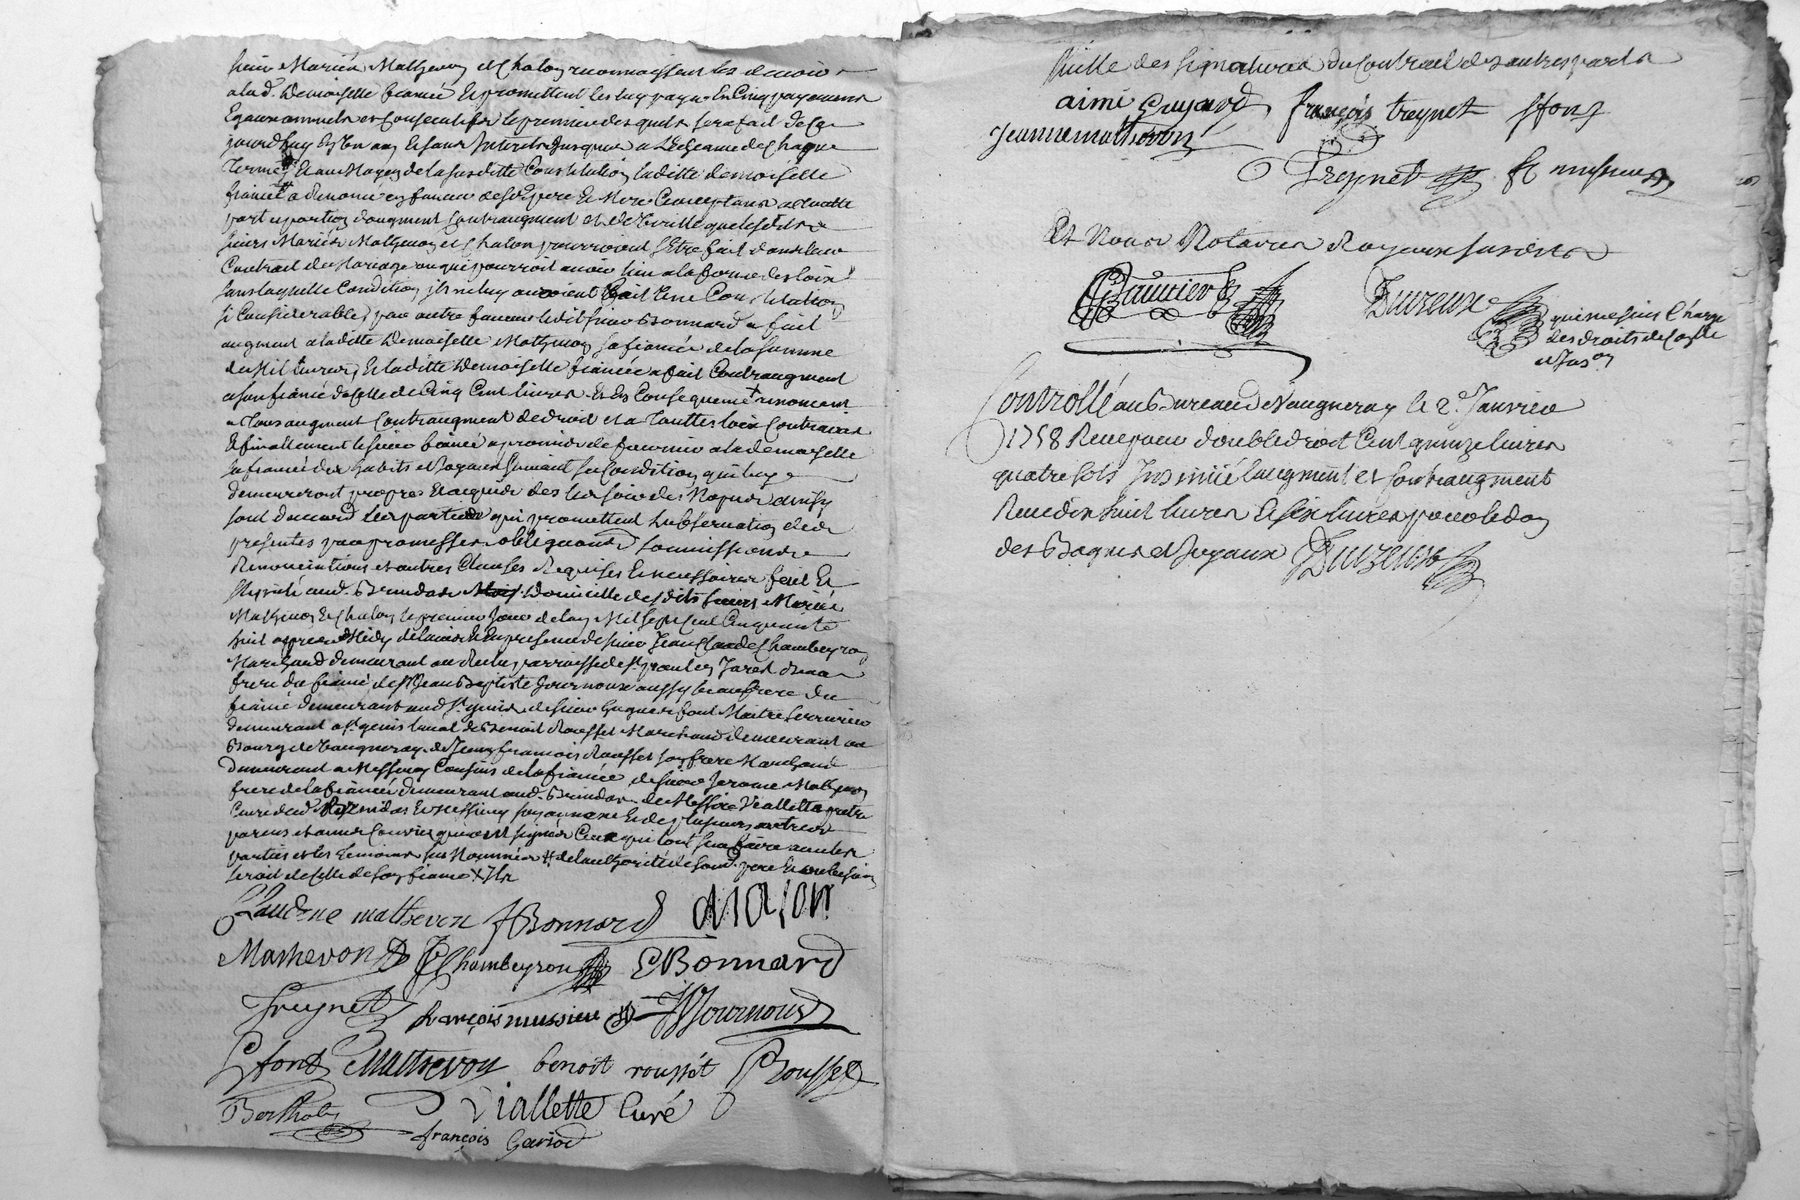 sieurs Mariés Mathevon et Chalon reconnoissent les devoir
a lad. Demoiselle fiancée et promettent les luy payer En Cinq payements
Egaux annuels et Consecutifs le premier desquels sera fait de Ce
jourd'huy En un an et sans Interets jusques a L'echeance de Chaque
Terme Et au Moyen de la susditte Constitution laditte demoiselle
fiancée a renoncé en faveur de ses pere et Mere acceptans a touttte
part et portion d'augment Contraugment et de que lesdits
sieurs Mariés Mathevon et Chalon pourroient s'etre fait dans leur
Contrat de Mariage ou qui pourroit avoir lieu a la forme des loix
sans laquelle Condition ils ne luy auroient fait Une Constitution
si Considerable, par autre faveur ledit sieur Bonnard a fait
augment a laditte Demoiselle Mathevon sa fiancée de la somme
de Mil livres, Et laditte Demoiselle fiancée a fait Contraugment
a son fiancé de Celle de Cinq Cent livres Et En Consequence renoncent
a Tous augment Contraugment de droit et a Touttes loix Contraires
Et finallement le sieur fiancé a promis de fournir a la demoiselle
sa fiancée des habits et Joyaux suivant sa Condition qui luy
demeureront propres Et acquis des le jour des Nopces ainsy
sont d'accord les parties qui promettent l'observation des
presentes par promesses obligations soumissions
Renonciations et autres Clauses Requises Et necessaires fait Et
aud. Brindas Domicille desdits sieurs Mariés
Mathevon Et Chalon le premier Jour de l'an Mil sept Cent Cinquante
huit apres Midy Et En presence de sieur Jean Claude Chambeyron
Marchand demeurant au parroisse de St. paul en Jarest Beau
frere du fiancé de sr Jean Baptiste Journoux aussy beaufrere du
fiancé demeurant aud St genis de sieur font Maitre serrurier
demeurant a St. genis Laval de Benoit Rousset Marchand demeurant au
Bourg de Vaugneray de Jean françois Rousset son frere Marchand
Demeurant a Messimy Cousins de la fiancée de sieur Jerome Mathevon
frere de la fiancée demeurant aud. Brindas de Messire Viallette pretre
Curé dud Brindas Et Messimy son annexe Et de plusieurs autres
parens et amis Convies qui ont signés Ceux qui l'ont sceu faire avec les
parties et les temoins sus Nommés # de l'authorité de son d. pere
seroit de Celle de son fiancé
Claudine mathevon JBonnard chalon
Mathevon JC Chambeyron CBonnard
Freynet françois mussieu JBJournoux
G font Mathevon benoit roussét Rousset
Bertholon Viallette Curé
françois Gariod
Suitte des signatures du Contract des autres parts
aimé Guyard françois treynet ffont
Jeanne mathevon
Treynet fr mussieu
Et Nous Notaires Royaux sussignés
Gautier Duzeux
qui me suis Chargé
des droits de Contlle
et Ins.on
Controllé au Bureau de Vaugneray le 2.e Janvier
1758 Receu pour double droit Cent quinze livres
quatre sols Insinué l'augment et Contraugment
Receu dix huit livres et six livres pour le don
des Bagues et Joyaux Duzeux